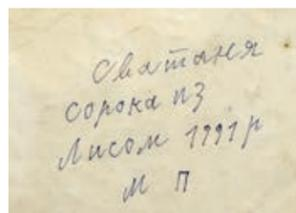 Сватаня
сорока из
Лисом 1991 р
М П